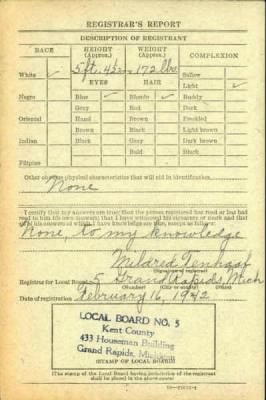 REGISTRAR'S REPORT
DESCRIPTION OF REGISTRANT
RACE HEIGHT (Approx.) WEIGHT (Approx.) COMPLEXION
White ✓ 5 ft. 4½ 172 lbs. Sallow
EYES HAIR Light ✓
Negro Blue ✓ Blonde ✓ Ruddy
Gray Red Dark
Oriental Hazel Brown Freckled
Brown Black Light brown
Indian Black Gray Dark brown
Bald Black
Filipino
Other obvious physical characteristics that will aid in identification
None
I certify that my answers are true; that the person registered has read or has had
read to him his own answers; that I have witnessed his signature or mark and that
all of his answers of which I have knowledge are true, except as follows:
None, to my knowledge
Mildred Tenhaaf
(Signature of registrar)
Registrar for Local Board 5 Grand Rapids, Mich
(Number) (City or county) (State)
Date of registration February 16, 1942
LOCAL BOARD NO. 5
Kent County
433 Houseman Building
Grand Rapids, Michigan
(STAMP OF LOCAL BOARD)
(The stamp of the Local Board having jurisdiction of the registrant
shall be placed in the above space.)